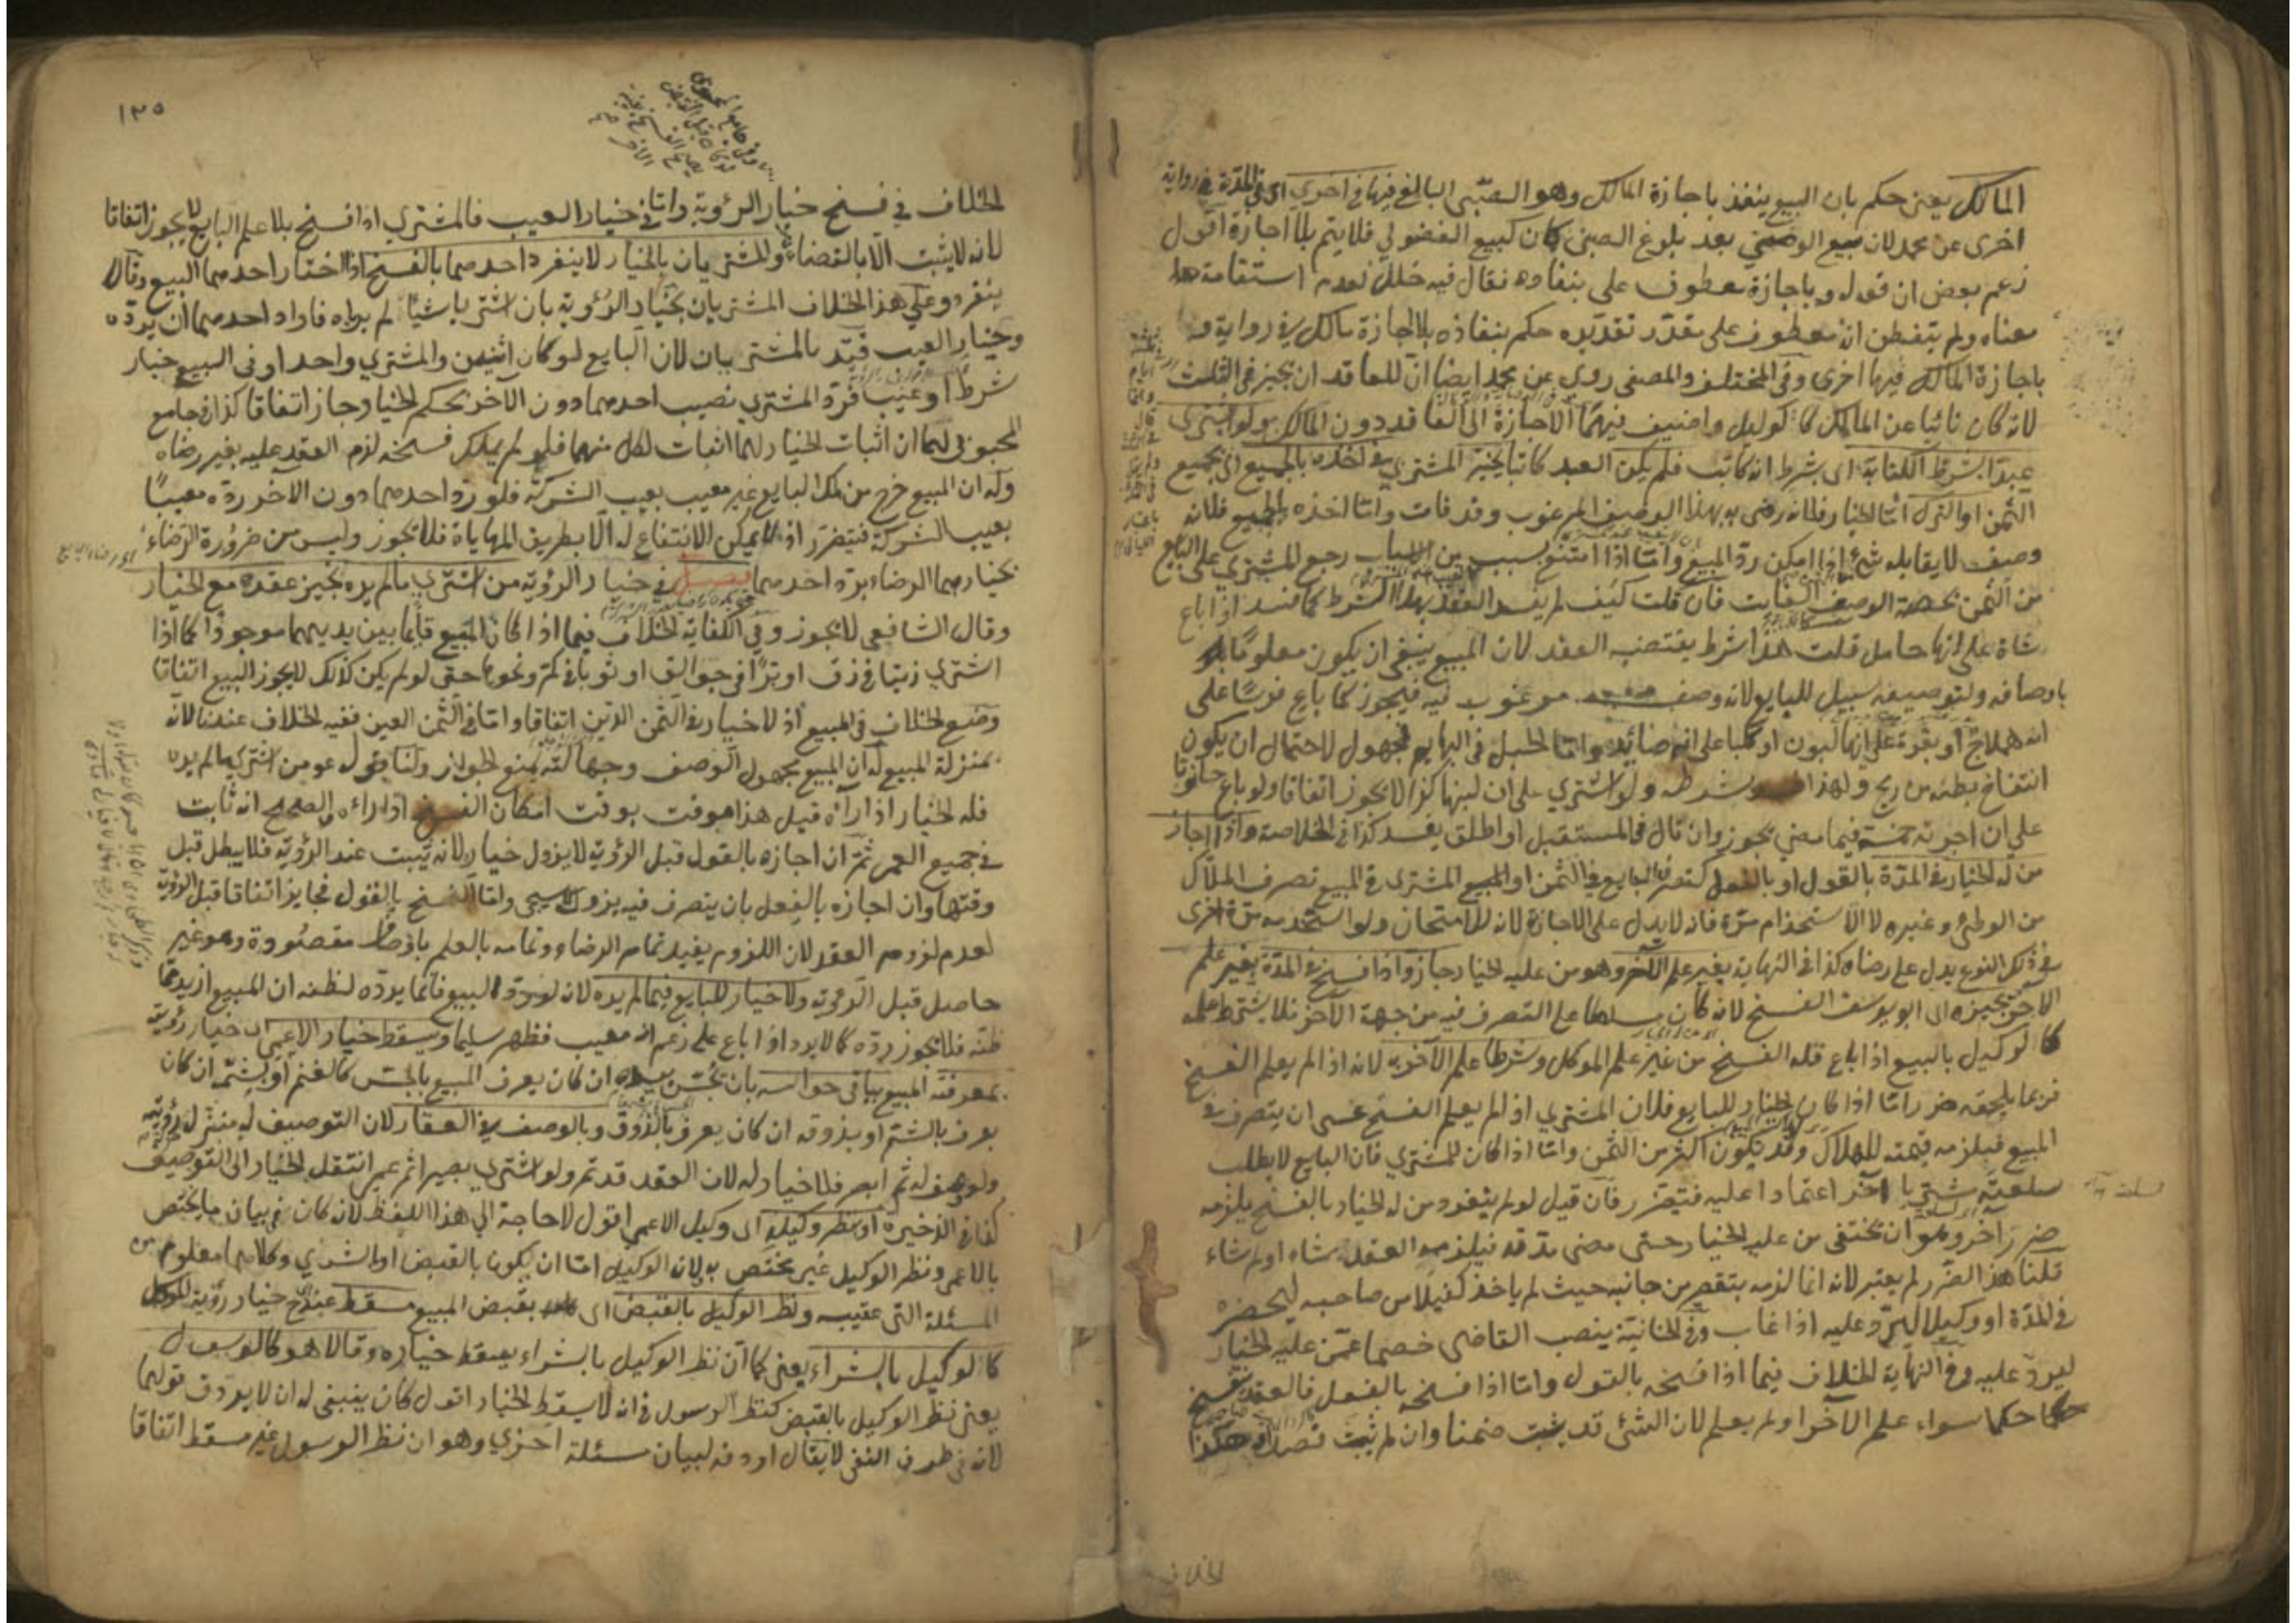 المالك يعني حكم بان البيع ينفذ باجازة المالك وهو الصبي البالغ فيها في اخرى اي في المدة في رواية
اخرى عن محمد لان بيع الوصي بعد بلوغ الصبي كان كبيع الفضولي فلا يتم بلا اجازة اقول
زعم بعض ان قوله وباجازة معطوف على بنفاذه فقال فيه خلل لعدم استقامة
معناه ولم يتفطن انه معطوف على مقدر تقديره حكم بنفاذه بلا اجازة مالك في رواية و
باجازة المالك فيها اخرى وفي المختلف والمصفى روي عن محمد ايضا ان للعاقد ان يجيز في الثلث
لانه كان نائبا عن المالك كالوكيل واضيف فيهما الاجازة الى العاقد دون المالك ولو اشترى
عبدا بشرط الكتابة اي بشرط انه كاتب فلم يكن العبد كاتبا يخير المشتري في اخذه بالجميع اي بجميع
الثمن او الترك اما الخيار فلانه رضي به بهذا الوصف المرغوب وقد فات واما اخذه بالجميع فلانه
وصف لا يقابله شئ اذا امكن رد المبيع واما اذا امتنع بسبب من الاسباب رجع المشتري على البايع
من الثمن بحصة الوصف الفايت فان قلت كيف لم يفسد العقد بهذا الشرط كما فسد اذا باع
شاة على انها حامل قلت هذا شرط يقتضيه العقد لان المبيع ينبغي ان يكون معلوما
باوصافه ولتوصيفه سبيل للبايع لانه وصف مرغوب فيه فيجوز كما باع فرسا على
انه هملاج او بقرة على انها لبون او كلبا على انه صائد واما الحبل في البهايم فمجهول لاحتمال ان يكون
انتفاخ بطنه من ريح ولهذا بشرطه ولو اشترى على ان لبنها كذا لا يجوز اتفاقا ولو باع حانوتا
على ان اجرته خمسة فيما مضى يجوز وان قال في المستقبل او اطلق يفسد كذا في الخلاصة واذا اجاز
من له الخيار في المدة بالقول او بالفعل كتصرف البايع في الثمن او المبيع المشترى في المبيع تصرف الملاك
من الوطئ وغيره لا الاستخدام مرة فانه لا يدل على الاجازة لانه للامتحان ولو استخدمه مرة اخرى
في ذلك النوع يدل على رضاه كذا في النهاية بغير علم الآخر وهو من عليه الخيار جاز واذا فسخ في المدة بغير علم
الآخر يجيزه اي ابو يوسف الفسخ لانه كان مسلطا على التصرف فيه من جهة الآخر فلا يشترط علمه
كالوكيل بالبيع اذا باع فله الفسخ من غير علم الموكل وشرطا علم الآخر به لانه اذا لم يعلم الفسخ
فربما يلحقه ضرر اما اذا كان الخيار للبايع فلان المشتري اذا لم يعلم الفسخ عسى ان يتصرف في
المبيع فيلزمه قيمته للهلاك وقد يكون اكثر من الثمن واما اذا كان للمشتري فان البايع لا يطلب
سلعته مشتريا آخر اعتمادا عليه فيتضرر فان قيل لو لم ينفرد من له الخيار بالفسخ يلزمه
ضرر آخر وهو ان يختفي من عليه الخيار حتى مضى مدته فيلزمه العقد شاء او لم يشاء
قلنا هذا الضرر لم يعتبر لانه انما لزمه بتقصير من جانبه حيث لم ياخذ كفيلا من صاحبه ليحضره
في المدة او وكيلا ليرد عليه اذا غاب وفي الخانية ينصب القاضي خصما عمن عليه الخيار
ليرد عليه وفي النهاية الخلاف فيما اذا فسخه بالقول واما اذا فسخه بالفعل فالعقد ينفسخ
حكما سواء علم الآخر او لم يعلم لان الشئ قد يثبت ضمنا وان لم يثبت قصدا هكذا
الخلاف
١٣٥
الخلاف في فسخ خيار الرؤية واما في خيار العيب فالمشتري اذا فسخ بلا علم البايع لا يجوز اتفاقا
لانه لا يثبت الا بالقضاء والمشتريان بالخيار لا ينفرد احدهما بالفسخ اذا اختار احدهما البيع وقالا
ينفرد وعلى هذا الخلاف المشتريان بخيار الرؤية بان اشتريا شيئا لم يرياه فاراد احدهما ان يرده
وخيار العيب قيد بالمشتريان لان البايع لو كان اثنين والمشتري واحدا وفي البيع خيار
شرط او عيب فرد المشتري نصيب احدهما دون الآخر بحكم الخيار جاز اتفاقا كذا في جامع
المحبوبي لهما ان اثبات الخيار لهما اثبات لكل منهما فلو لم يملك فسخه لزم العقد عليه بغير رضاه
وله ان المبيع خرج من ملك البايع غير معيب بعيب الشركة فلو رد احدهما دون الآخر رده معيبا
بعيب الشركة فيتضرر اذ لا يمكن الانتفاع له الا بطريق المهاياة فلا يجوز وليس من ضرورة الرضاء
بخيارهما الرضاء برد احدهما فصل في خيار الرؤية من اشترى ما لم يره نجيز عقده مع الخيار
وقال الشافعي لا يجوز وفي الكفاية الخلاف فيما اذا كان المبيع قائما بين يديهما موجودا كما اذا
اشترى زيتا في زق او برا في جوالق او ثوبا في كم ونحوها حتى لو لم يكن كذلك لا يجوز البيع اتفاقا
وضع الخلاف في المبيع اذ لا خيار في الثمن الدين اتفاقا واما في الثمن العين ففيه الخلاف عندنا لانه
بمنزلة المبيع له ان المبيع مجهول الوصف وجهالته تمنع الجواز ولنا قوله عم من اشترى ما لم يره
فله الخيار اذا رآه قيل هذا موقت بوقت امكان الفسخ اذا رآه والصحيح انه ثابت
في جميع العمر ثم ان اجازه بالقول قبل الرؤية لا يزول خياره لانه يثبت عند الرؤية فلا يبطل قبل
وقتها وان اجازه بالفعل بان يتصرف فيه يزول واما الفسخ بالقول فجايز اتفاقا قبل الرؤية
لعدم لزوم العقد لان اللزوم يفيد تمام الرضاء وتمامه بالعلم باوصاف مقصودة وهو غير
حاصل قبل الرؤية ولا خيار للبايع فيما لم يره لانه لو رد البيع فانما يرده لظنه ان المبيع ازيد مما
ظنه فلا يجوز رده كما لا يرد اذا باع على زعم انه معيب فظهر سليما ويسقط خيار الاعمى اي خيار رؤيته
بمعرفة المبيع بباقي حواسه بان يجس بيده ان كان يعرف المبيع بالجس كالغنم او يشمه ان كان
يعرف بالشم او يذوقه ان كان يعرف بالذوق وبالوصف في العقار لان التوصيف له منزلة رؤيته
ولو وصف له ثم ابصر فلا خيار له لان العقد قد تم ولو اشترى بصير ثم عمى انتقل الخيار الى التوصيف
كذا في الذخيرة او نظر وكيله اي وكيل الاعمى اقول لا حاجة الى هذا اللفظ لانه كان في بيان ما يختص
بالاعمى ونظر الوكيل غير مختص به لان الوكيل اما ان يكون بالقبض او الشرى وكلاهما معلوم من
المسئلة التي عقيبه ونظر الوكيل بالقبض اي بقبض المبيع مسقط عند ح خيار رؤية الموكل
كالوكيل بالشراء يعني كما ان نظر الوكيل بالشراء يسقط خياره وقالا هو كالرسول
يعني نظر الوكيل بالقبض كنظر الرسول في انه لا يسقط الخيار اقول كان ينبغي له ان لا يردف قولهما
لانه في طرف النفي لا يقال اردفه لبيان مسئلة اخرى وهو ان نظر الرسول غير مسقط اتفاقا